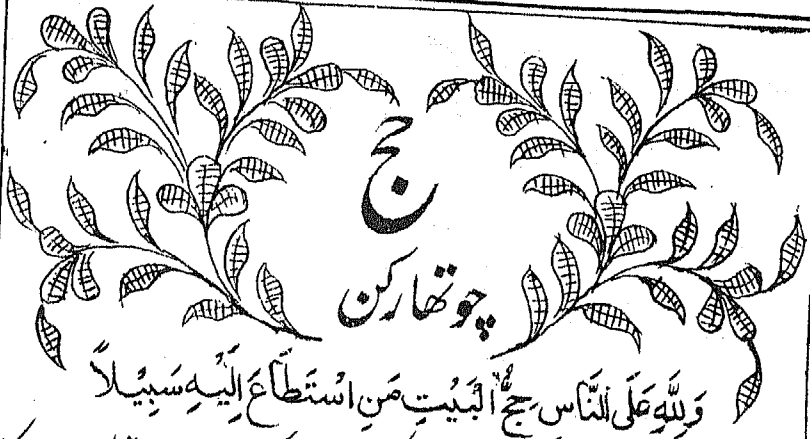 حج
چوتھا رکن
وَلِلّٰهِ عَلَى النَّاسِ حِجُّ الْبَيْتِ مَنِ اسْتَطَاعَ اِلَيْهِ سَبِيْلاً